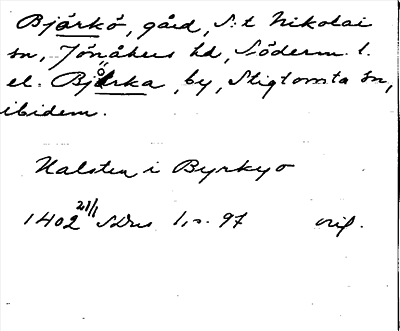 Björkö, gård, S:t Nikolai
sn, Jönåkers hd, Söderm. l.
el. Björka, by, Stigtomta sn,
ibidem.
Halsten i Byrkyo
1402 21/1 SDns 1, s. 97 orig.